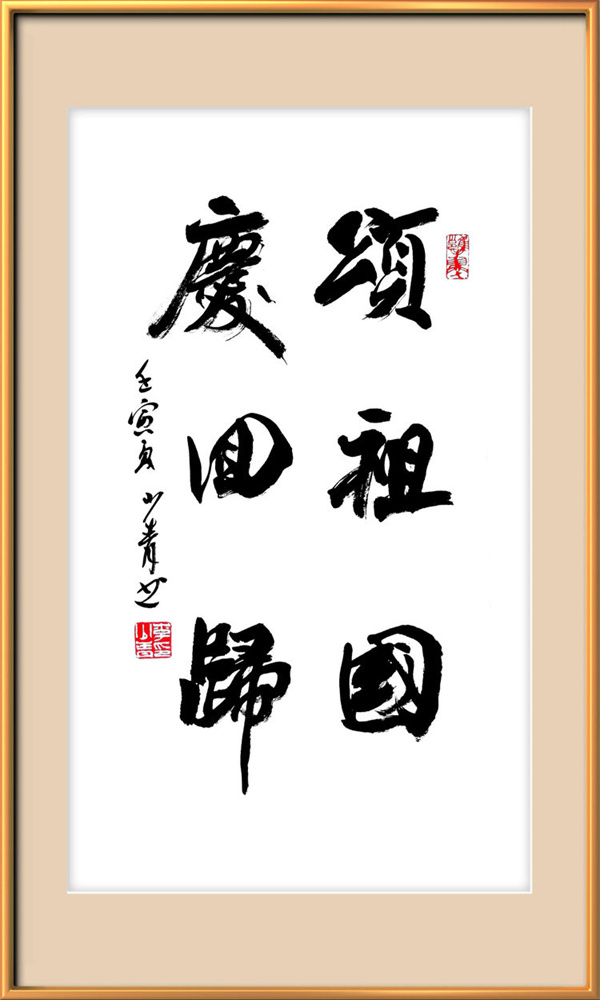 頌祖國
慶回歸
壬寅夏 少青书